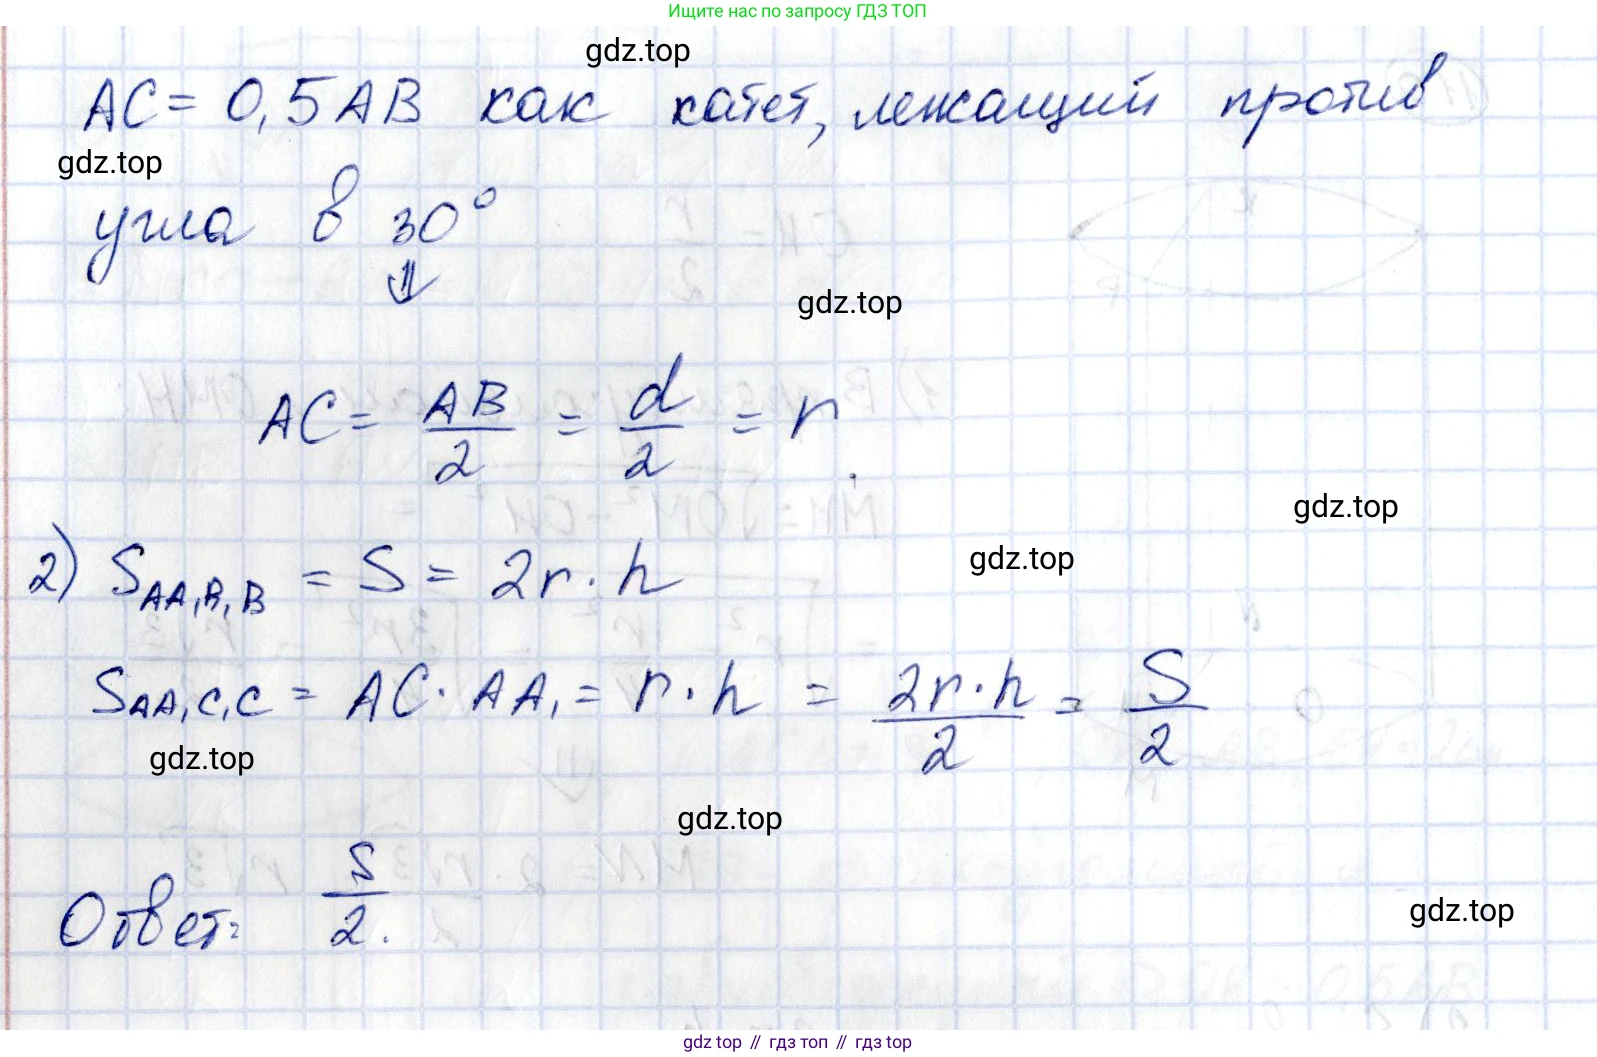 Ищите нас по запросу ГДЗ ТОП
gdz.top
AC = 0,5AB как катет, лежащий против
gdz.top
угла в 30°
⇓
gdz.top
AC = AB/2 = d/2 = r.
gdz.top
gdz.top
2) S_AA₁B₁B = S = 2r · h
S_AA₁C₁C = AC · AA₁ = r · h = 2r·h/2 = S/2
gdz.top
gdz.top
Ответ: S/2.
gdz.top
gdz top // гдз топ // гдз top